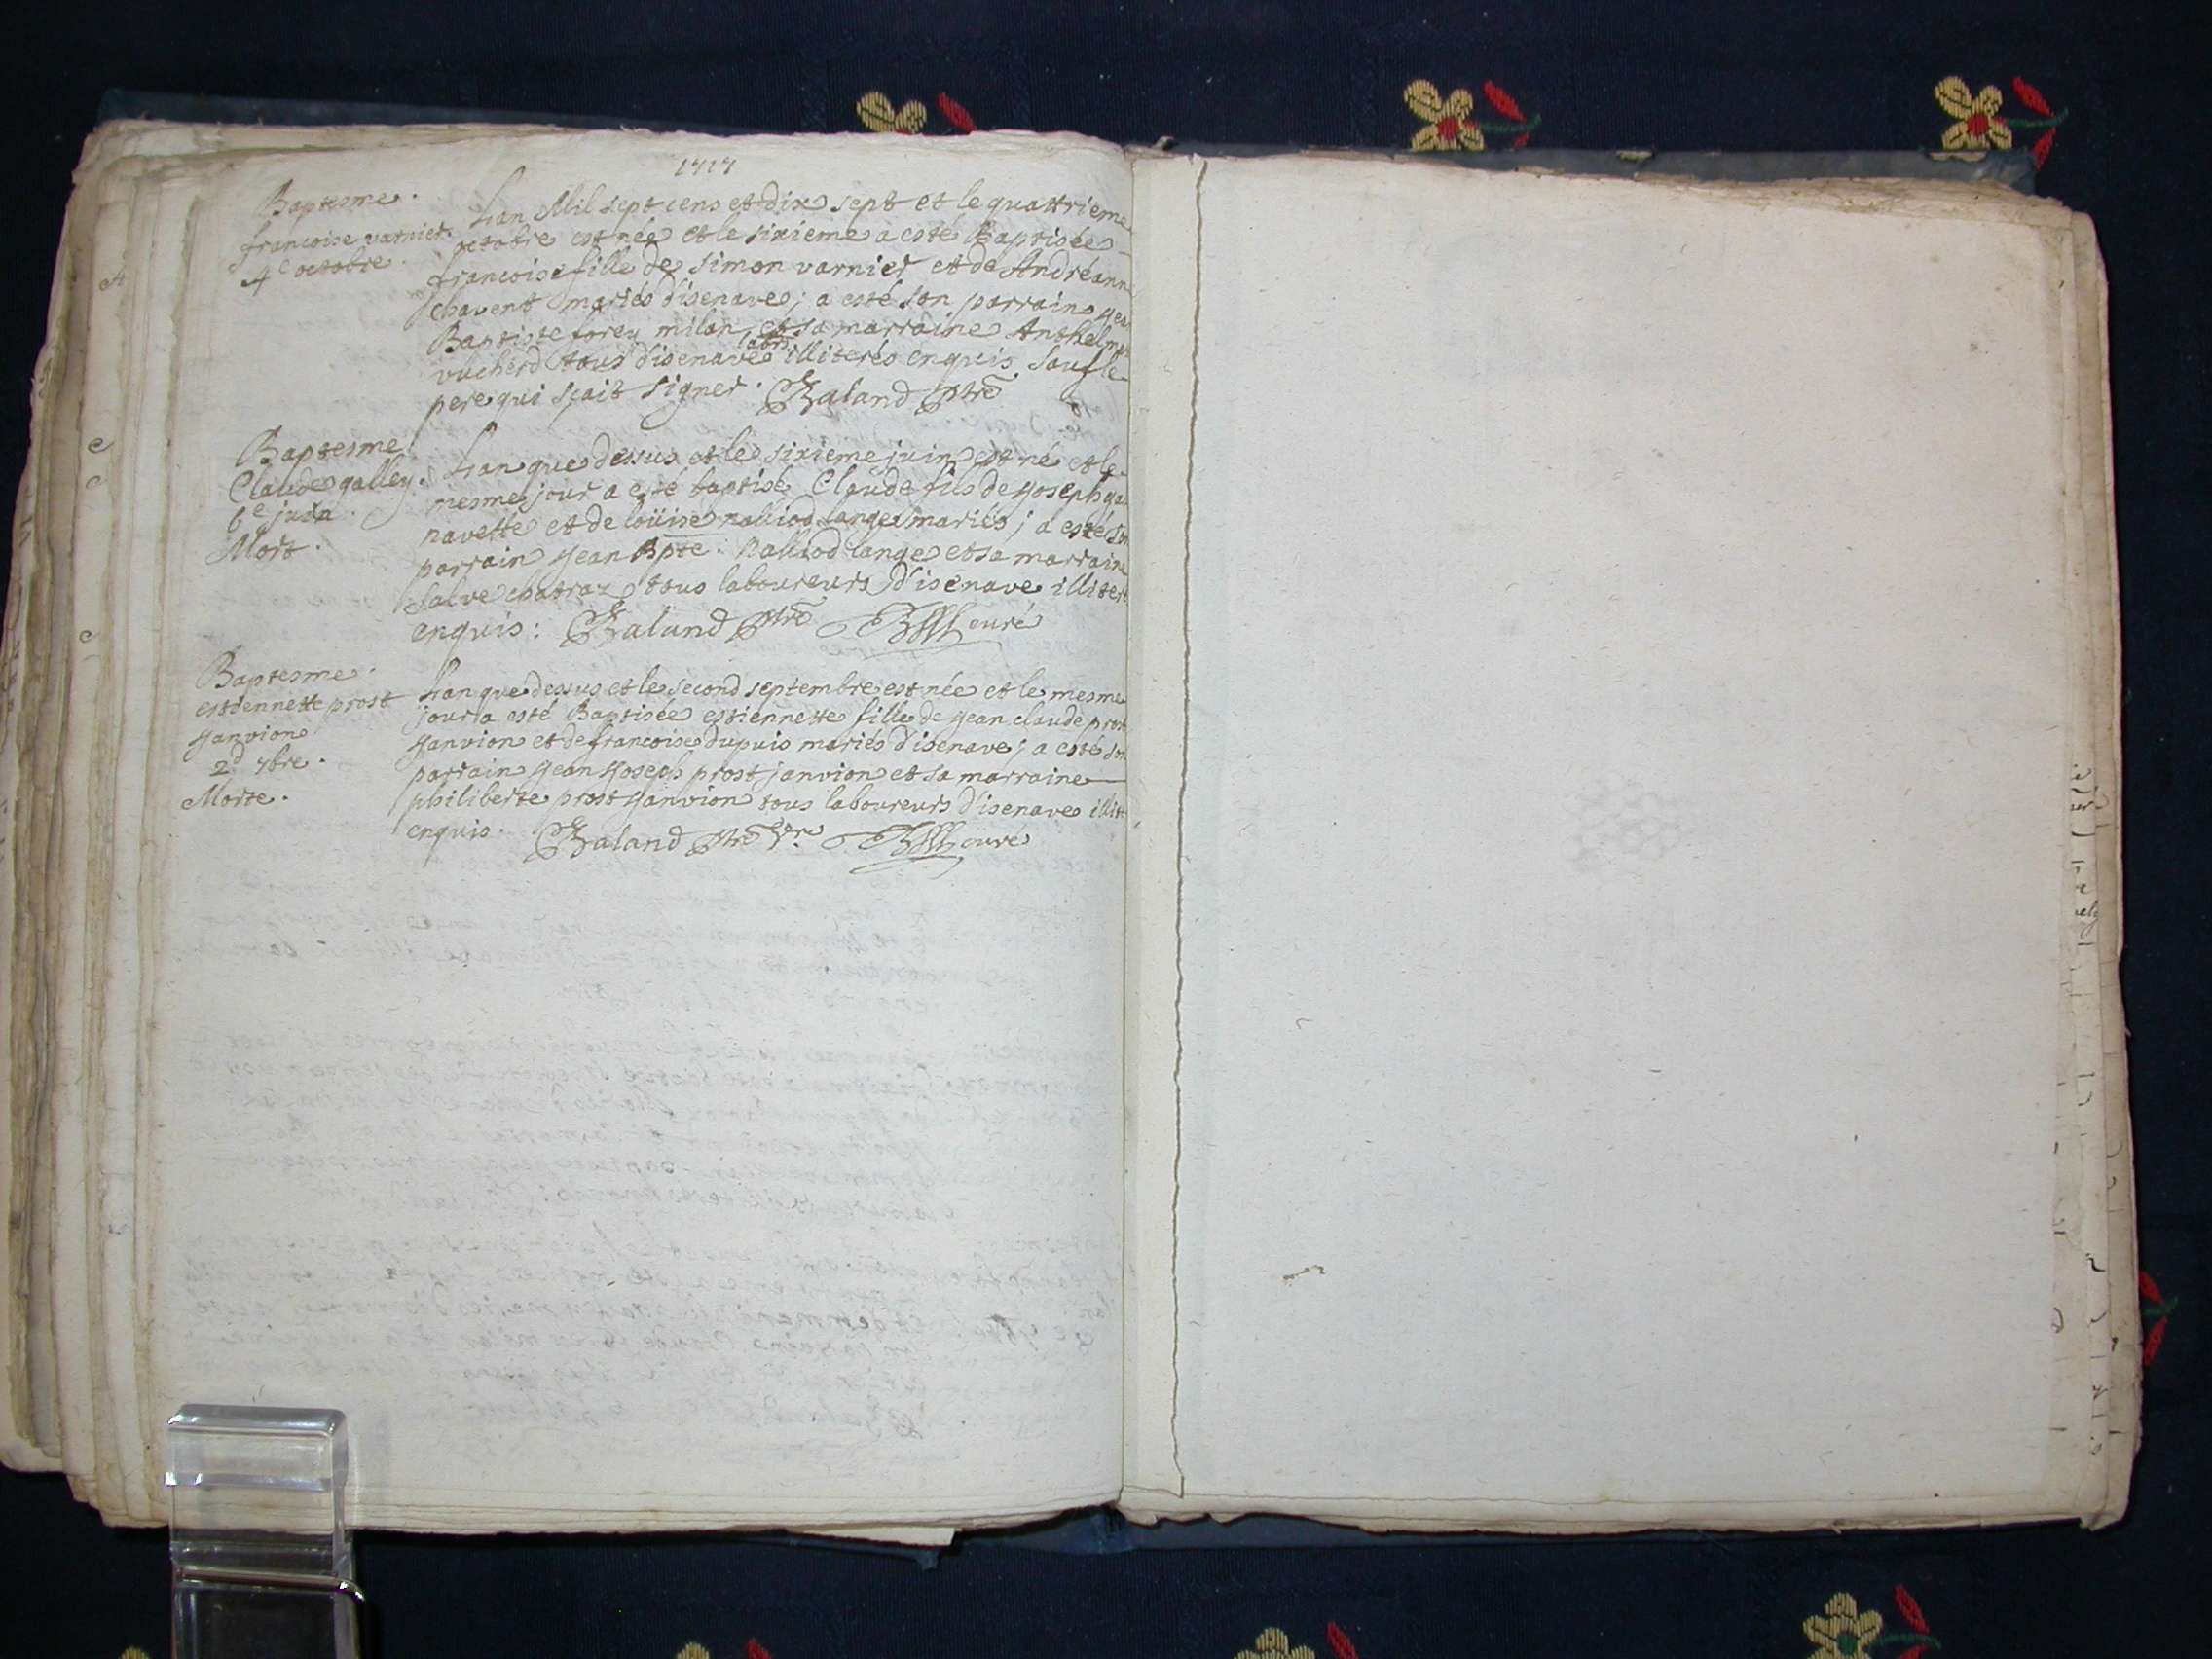 1717
Baptesme.
francoise varnier.
4e octobre.
Lan Mil sept cens et dix sept et le quattrieme
octobre est née et le sixieme a esté Baptisée
francoise fille de simon varnier et de Andréanne
chavent mariés d'isenave; a esté son parrain
Baptiste forey milan, et sa marraine Anthelme
vucherd tous labrs d'isenave illiterés enquis, sauf le
pere qui sçait signer. Baland ptre
Baptesme
Claude galley.
6e juin.
Mort.
Lan que dessus et le sixieme juin est né et le
mesme jour a esté baptisé Claude fils de yoseph
navette et de loüise nalliod lange mariés; a esté son
parrain yean Bpte. nalliod lange et sa marraine
salve chatraz tous laboureurs d'isenave illiter
enquis: Baland ptre curé
Baptesme.
estiennette prost
yanvion
2d 7bre.
Morte.
Lan que dessus et le second septembre est née et le mesme
jour a esté Baptisée estiennette fille de yean claude prost
yanvion et de francoise dupuis mariés d'isenave; a esté son
parrain yean yoseph prost janvion et sa marraine
philiberte prost yanvion tous laboureurs d'isenave illit
enquis. Baland ptre vre curé